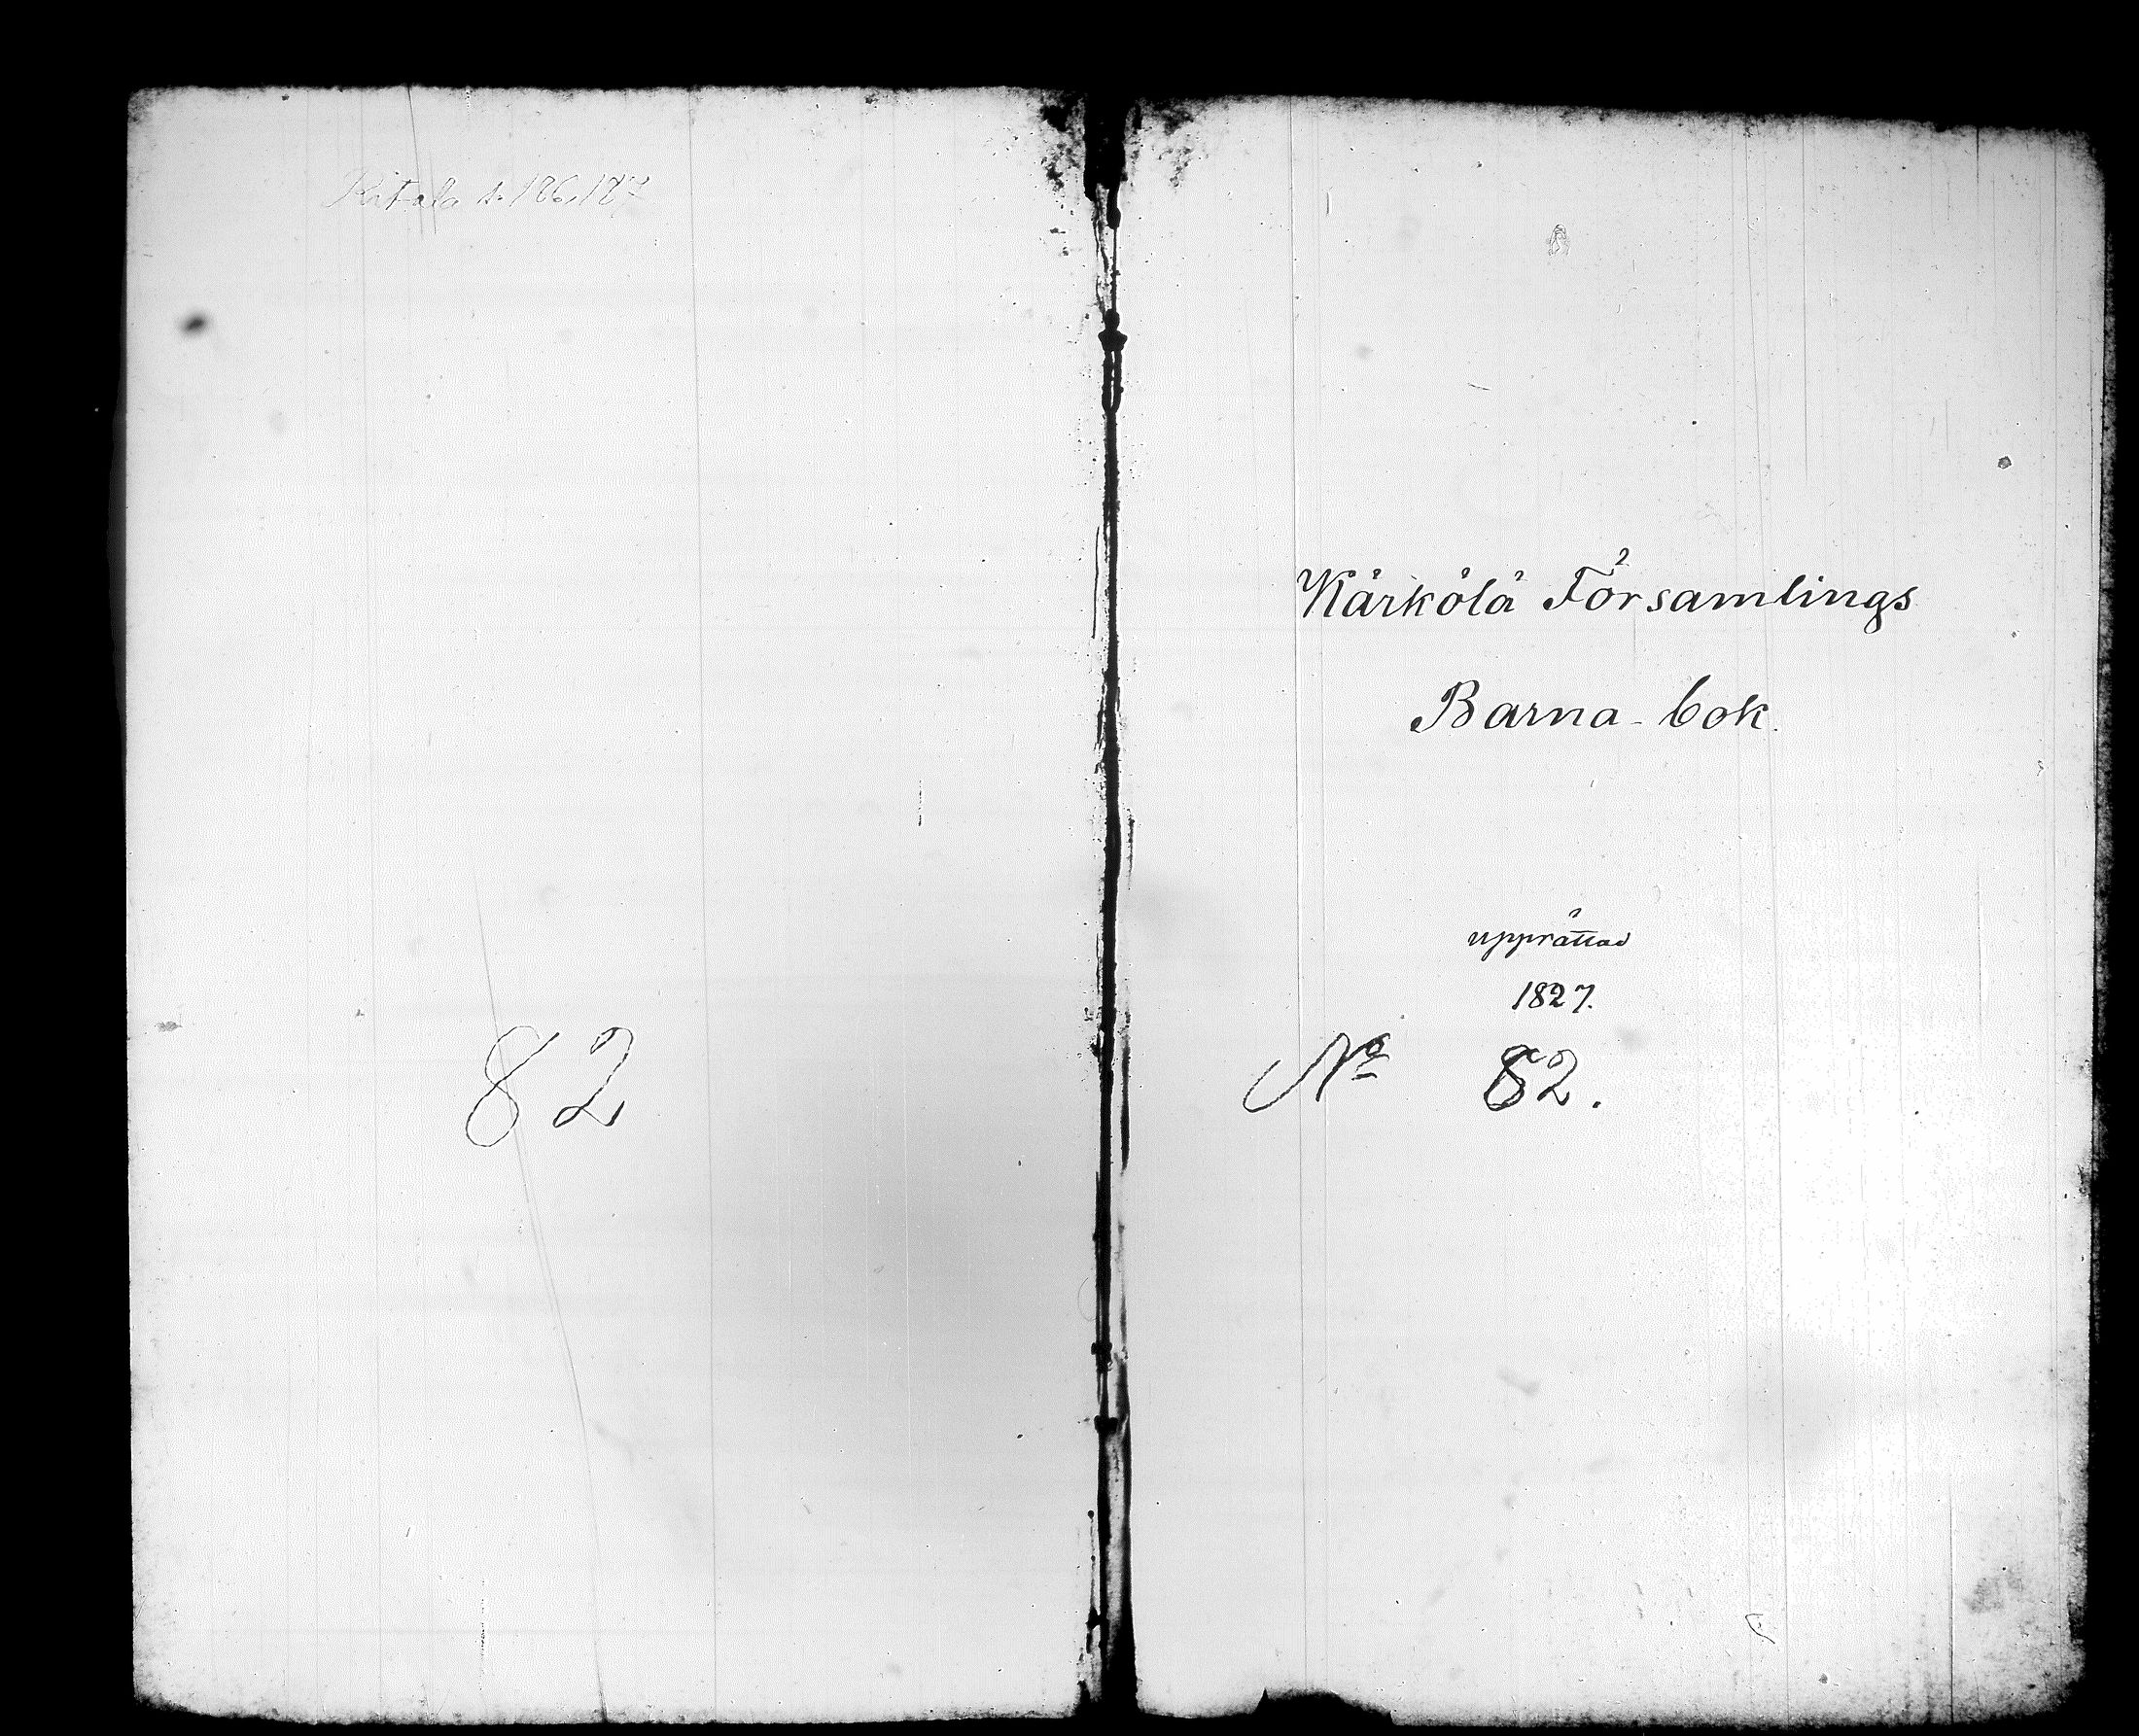 Kitala s. 186, 187
82
Kärkölä Församlings
Barna-bok.
upprättad
1827.
No 82.